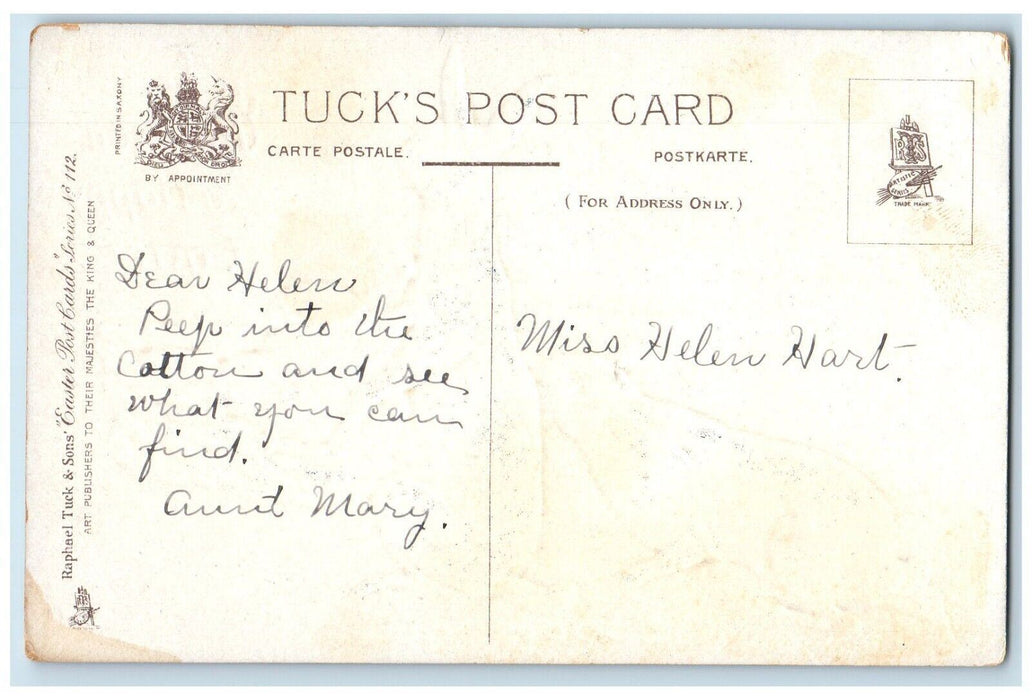 PRINTED IN SAXONY
BY APPOINTMENT
TUCK'S POST CARD
CARTE POSTALE.
POSTKARTE.
( FOR ADDRESS ONLY. )
TRADE MARK
Raphael Tuck & Sons' "Easter Post Cards" Series No 112.
ART PUBLISHERS TO THEIR MAJESTIES THE KING & QUEEN
Dear Helen
Peep into the
Cotton and see
what you can
find.
Aunt Mary.
Miss Helen Hart.